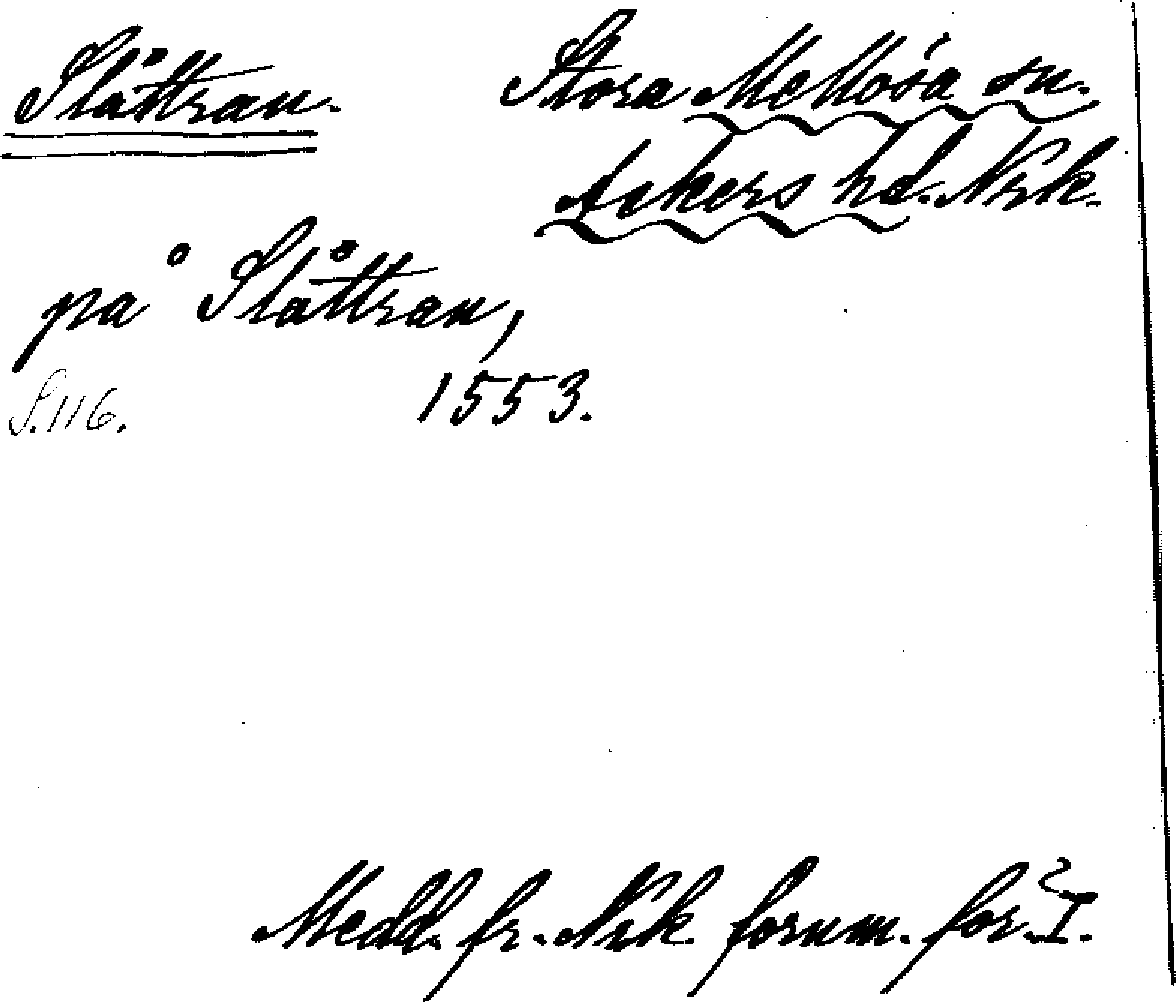 Slåttran. Stora Mellösa sn.
Askers hd. Nrk.
på Slåttran,
S. 116. 1553.
Medd. fr. Nrk fornm. för. I.